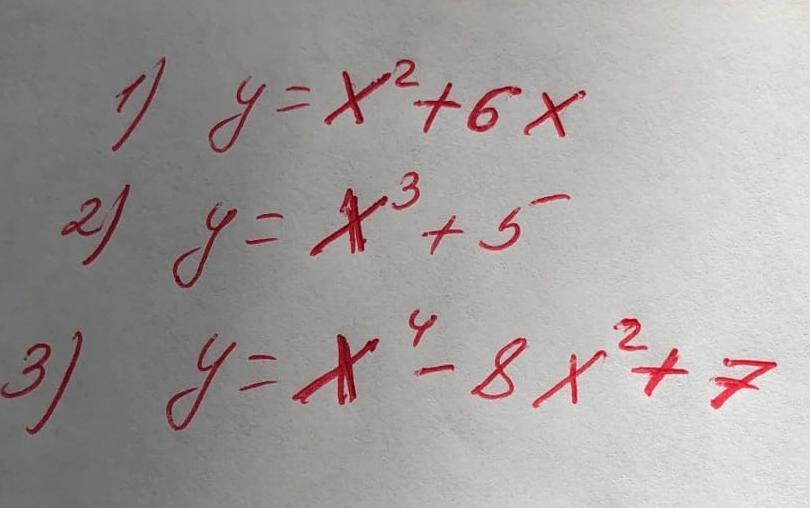 1) y = x² + 6x
2) y = x³ + 5
3) y = x⁴ - 8x² + 7